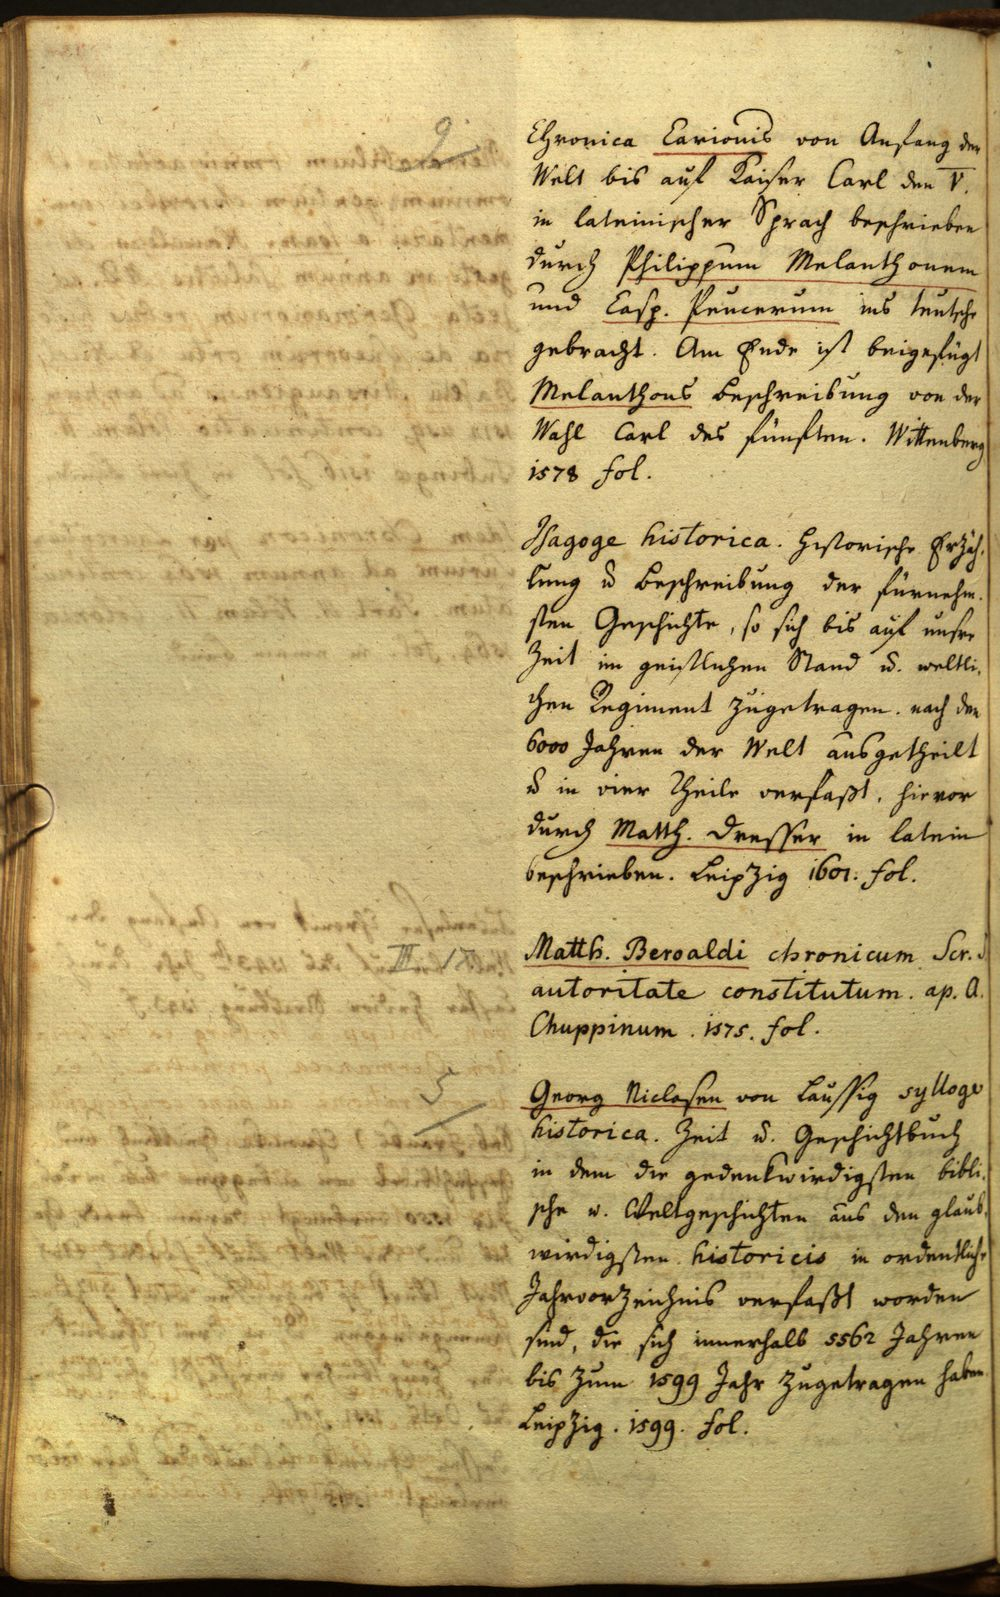 9.
Chronica Carionis von Anfang der
Welt bis auf Kaiser Carl den V.
in lateinischer Sprach beschrieben
durch Philippum Melanthonem
und Casp. Peucerum ins teutsche
gebracht. Am Ende ist beigefügt
Melanthons Beschreibung von der
Wahl Carl des fünften. Wittenberg
1578 fol.
Isagoge historica. Historische Erzäh-
lung u Beschreibung der fürnehm-
sten Geschichte, so sich bis auf unsre
Zeit im geistlichen Stand u. weltli-
chen Regiment zugetragen. nach den
6000 Jahren der Welt ausgetheilt
u in vier Theile verfaßt, hievor
durch Matth. Dresser in latein
beschrieben. Leipzig 1601. fol.
III 17.
Matth. Beroaldi chronicum Scr. S
autoritate constitutum. ap. A.
Chuppinum. 1575. fol.
5
Georg Niclasen von Laussig sylloge
historica. Zeit u. Geschichtbuch
in dem die gedenkwirdigsten bibli-
sche u. Weltgeschichten aus den glaub-
wirdigsten historicis in ordentliche
Jahrvorzeichnis verfaßt worden
sind, die sich innerhalb 5562 Jahren
bis zum 1599 Jahr zugetragen haben
Leipzig. 1599. fol.